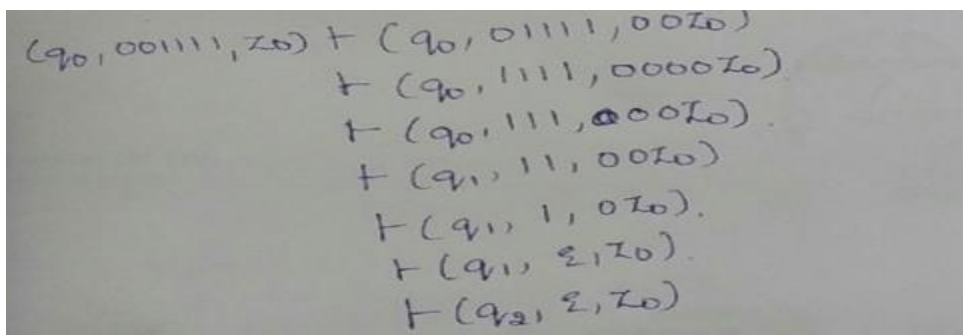 (q0, 001111, Z0) ⊢ (q0, 01111, 00Z0)
⊢ (q0, 1111, 0000Z0)
⊢ (q0, 111, 000Z0).
⊢ (q1, 11, 00Z0)
⊢ (q1, 1, 0Z0).
⊢ (q1, ε, Z0).
⊢ (q2, ε, Z0)